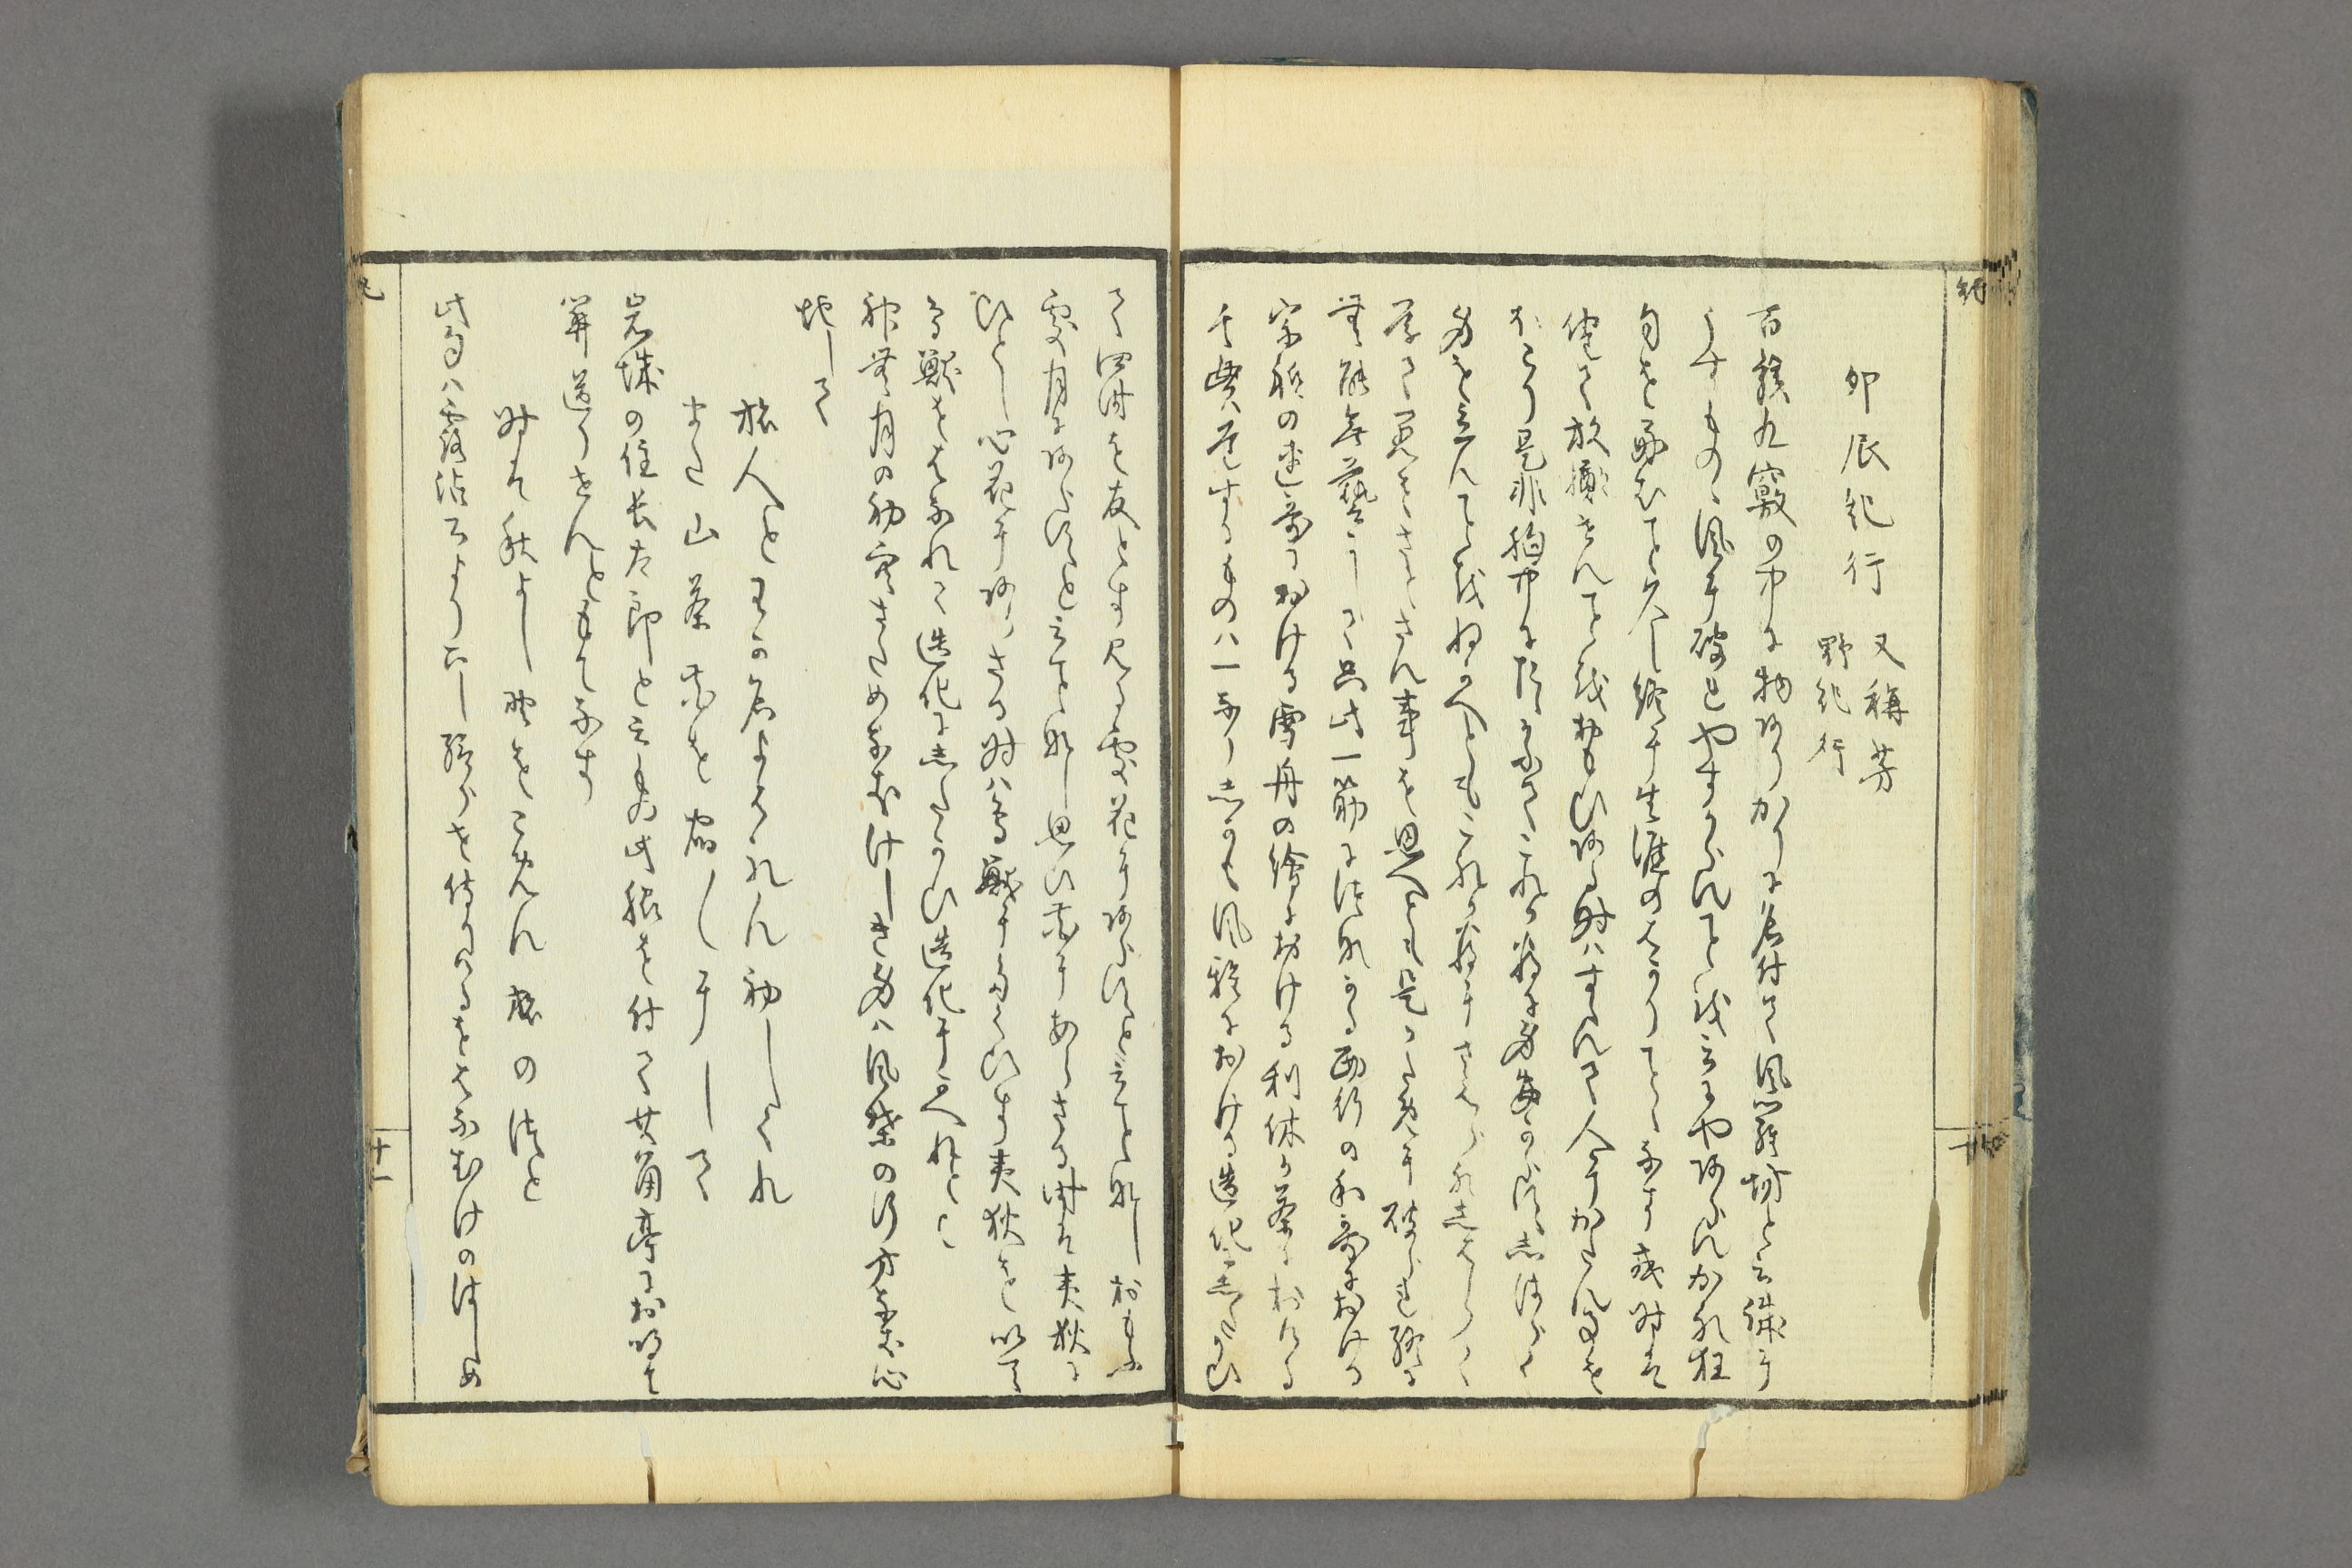 卯辰紀行 又稱芳
野紀行
百骸九竅の中に物ありかりに名付て風羅坊と云誠に
うすものゝ風に破れやすからんことを云にやあらんかれ狂
句を好むこと久し終に生涯のはかりことゝなす或時は
倦て放擲せんことをおもひある時ハすゝんて人にかたん事を
ほこり是非胸中にたゝかふてこれか為に身安からすしはらく
身を立んことをねかへともこれか為にさへられしはらく
学て愚をさとさん事を思へとも是かために破られ終に
無能無藝にして只此一筋に繋かる西行の和哥における
宗祇の連哥における雪舟の繪における利休か茶における
其貫道するものハ一なりしかも風雅における造化にしたかひ
て四時を友とす見る處花にあらすと云こと那しおもふ
處月にあらすと云こと那し思ひ花にあらさる時は夷狄に
ひとし心花にあらさる時ハ鳥獣にたくひす夷狄を出て
鳥獣をはなれて造化にしたかひ造化にかへれとこ
神無月の初空さためなきけしき身ハ風葉の行末なき心
地して
旅人とわか名よはれん初しくれ
また山茶花を宿〳〵にして
岩城の住長太郎と云もの此脇を付て其角亭におゐて
關送りせんともてなす
時は秋よし野をこめん旅のつと
此句ハ露沾公より下し給はらせ侍りけるをはなむけのはしめ
十一